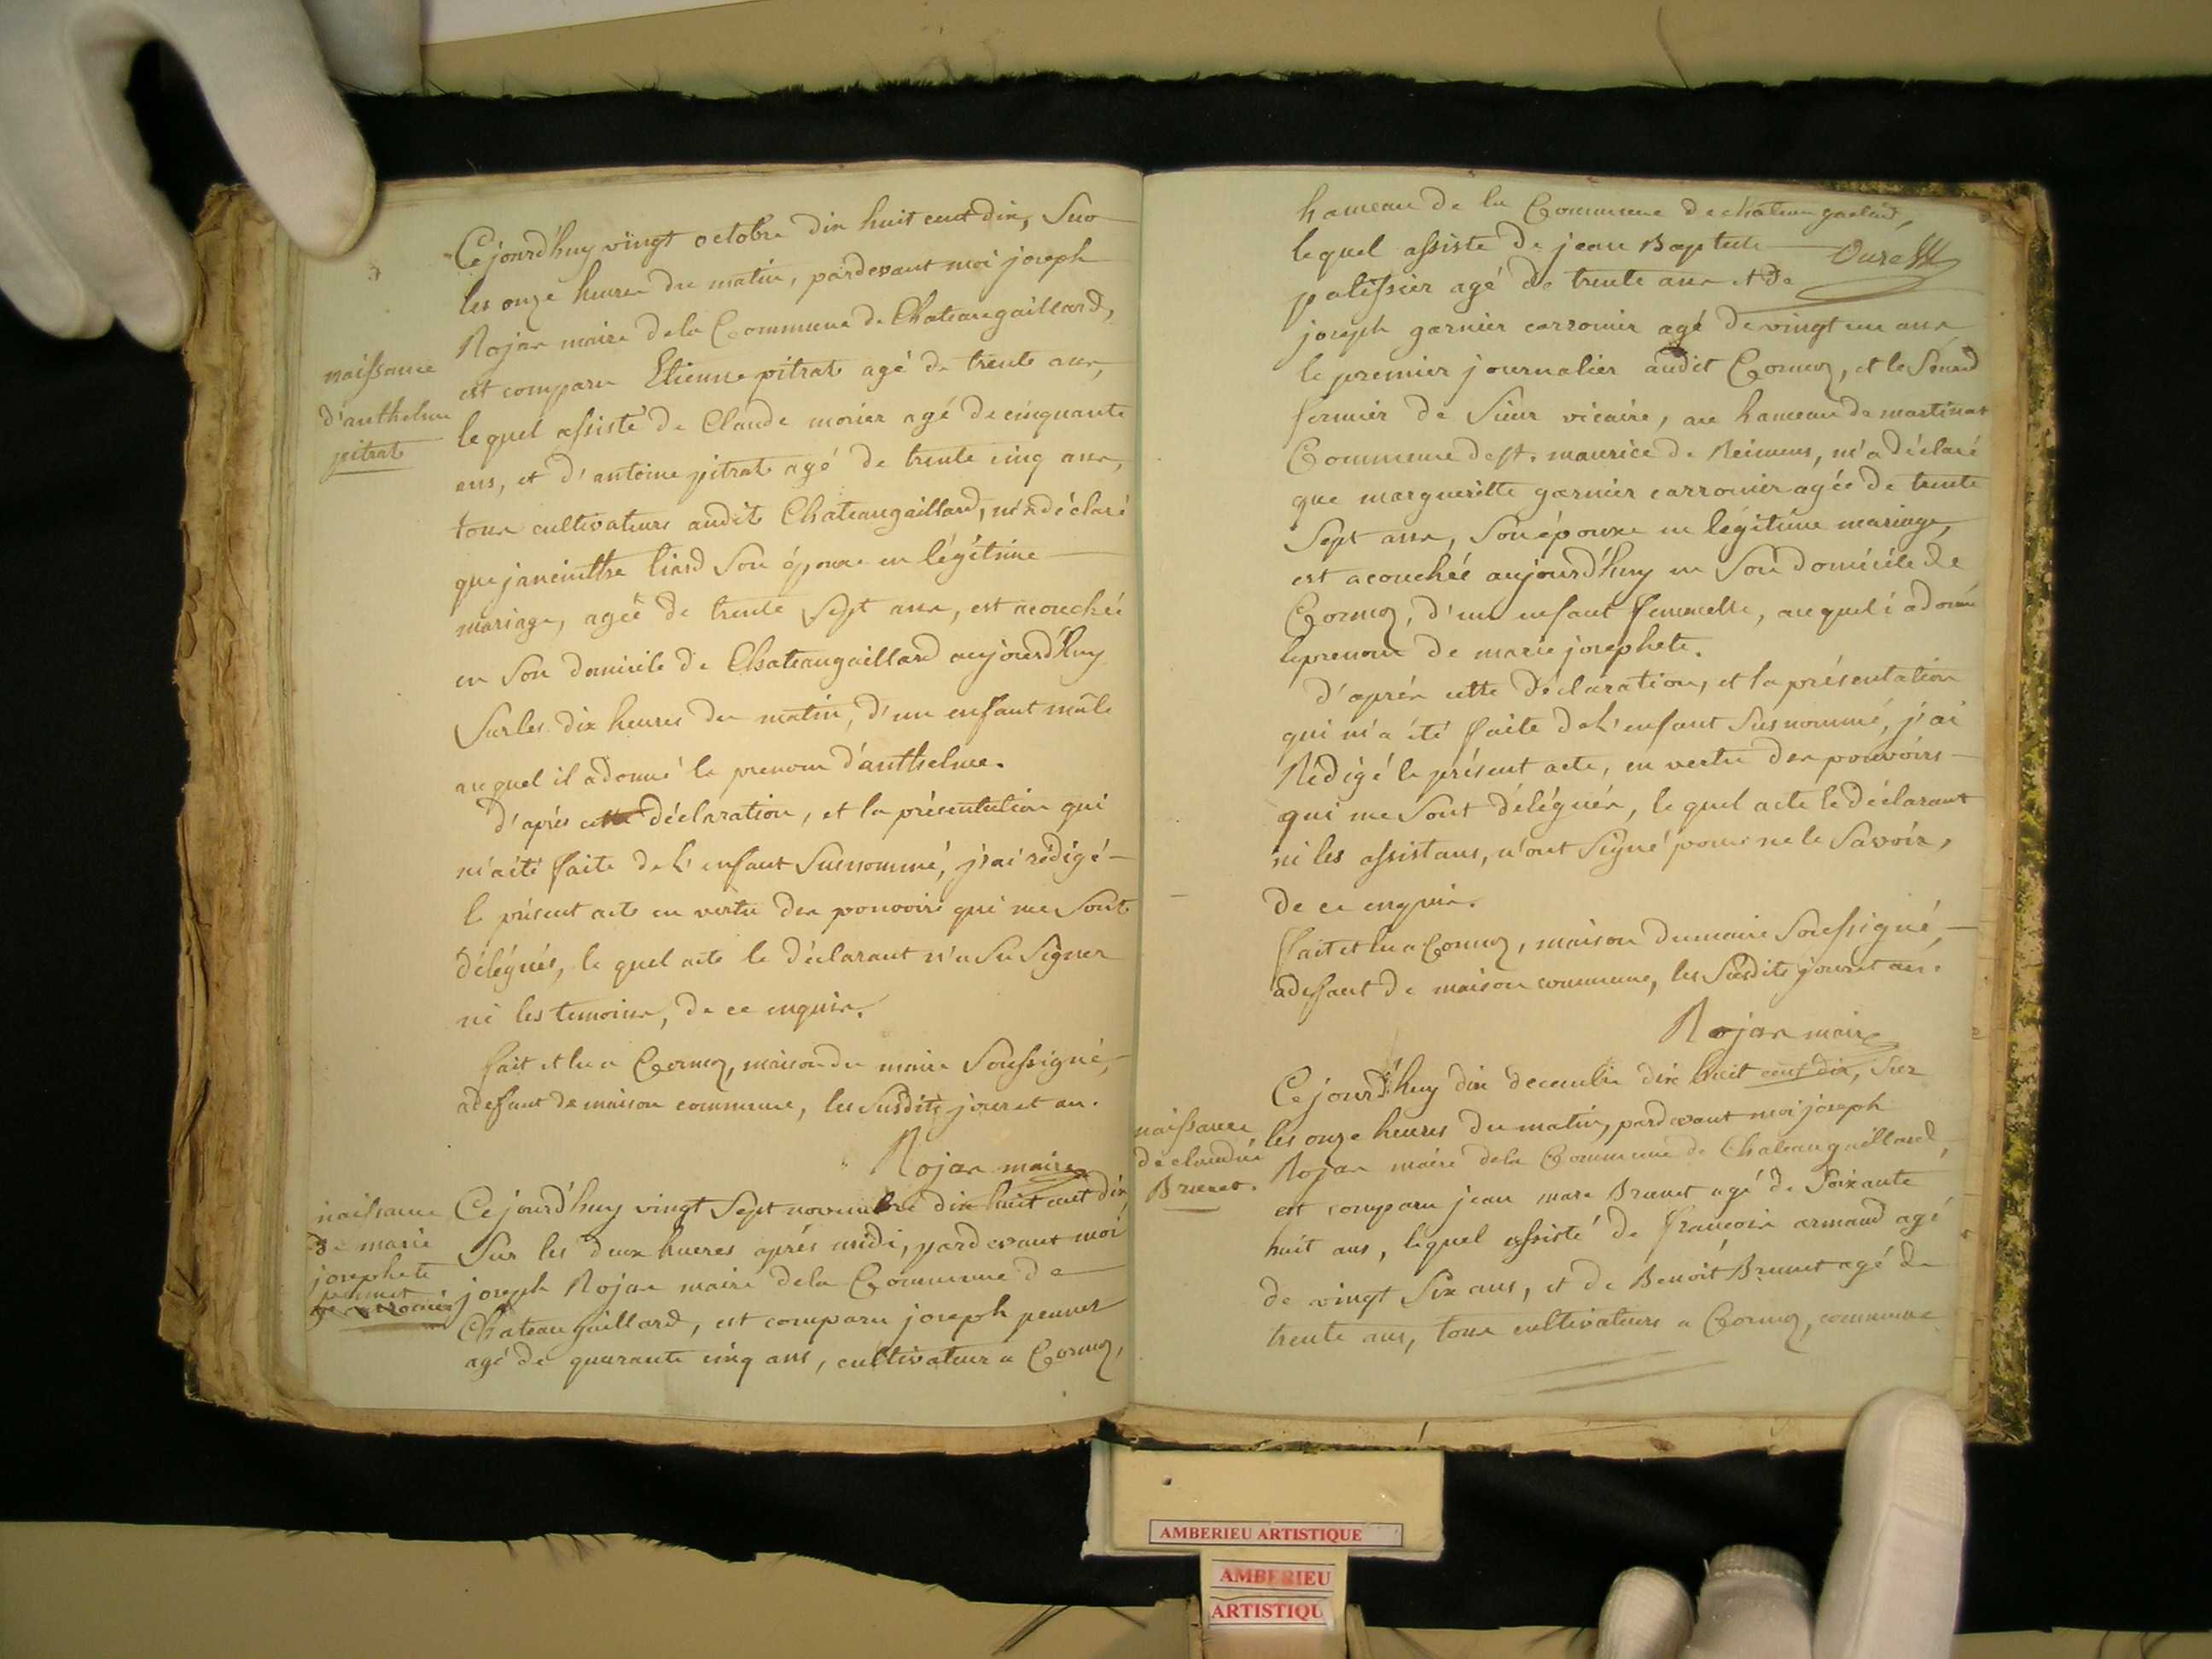 Cejourd'huy vingt octobre dix huit cent dix, Sur
les onze heures du matin, pardevant moi joseph
Rojar maire dela Commune de Chateaugaillard,
est comparu Etienne pitrat agé de trente ans,
lequel assisté de Claude monier agé de cinquante
ans, et d'antoine pitrat agé de trente cinq ans,
tous cultivateurs audit Chateaugaillard, m'a déclaré
que janeinthe liard Son épouse en légitime
mariage, agée de trente Sept ans, est acouchée
en Son domicile de Chateaugaillard aujourd'huy
Sur les dix heures du matin, d'un enfant mâle
auquel il a donné le prenom d'anthelme.
d'aprés cette déclaration, et la présentation qui
m'a été faite de l'enfant Susnommé, j'ai rédigé
le présent acte en vertu des pouvoirs qui me Sont
délégués, le quel acte le déclarant n'a Su Signer
ni les temoins, de ce enquis.
fait et lu a Cormoz, maison du maire Soussigné,
adefaut de maison commune, les Susdits jour et an.
Rojar maire
naissance
d'anthelme
pitrat
naissance
de marie
josephete
peunet
Cejourd'huy vingt Sept novembre dix huit cent dix
Sur les deux hueres aprés midi, pardevant moi
joseph Rojar maire dela Commune de
Chateaugaillard, est comparu joseph peunet
agé de quarante cinq ans, cultivateur a Cormoz,
hameau de la Commune de chateaugaelard,
lequel assiste de jean Baptiste
palissier agé de trente ans et de
joseph garnier carronier agé de vingt un ans
le premier journalier audit Cormoz, et le Sécond
fermier de Sieur vicaire, au hameau de martinas
Commune de St. maurice de Reimens, m'a déclaré
que margueritte garnier carronier agée de trente
Sept ans, Son épouse en légitime mariage,
est acouchée aujourd'huy en Son domicile de
Cormoz, d'un enfant femmelle, auquel i a donné
leprenom de marie josephete.
d'aprés cette déclaration, et la présentation
qui m'a été faite de l'enfant Susnommé, j'ai
Rédigé le présent acte, en vertu des pouvoirs
qui me Sont délégués, le quel acte le déclarant
ni les assistans, n'ont Signé pour ne le Savoir,
de ce enquis.
fait et lu a Cormoz, maison du maire Soussigné,
adefaut de maison commune, les Susdits jour et an.
Rojar maire
naissance
de claudine
Brunet.
Cejourd'huy dix decembre dix huit cent dix, Sur
les onze heures du matin, pardevant moi joseph
Rojar maire dela Commune de Chateaugaillard,
est comparu jean marc Brunet agé de Soixante
huit ans, lequel assisté de françois armand agé
de vingt Six ans, et de Benoit Brunet agé de
trente ans, tous cultivateurs a Cormoz, commune
AMBERIEU ARTISTIQUE
AMBERIEU
ARTISTIQU